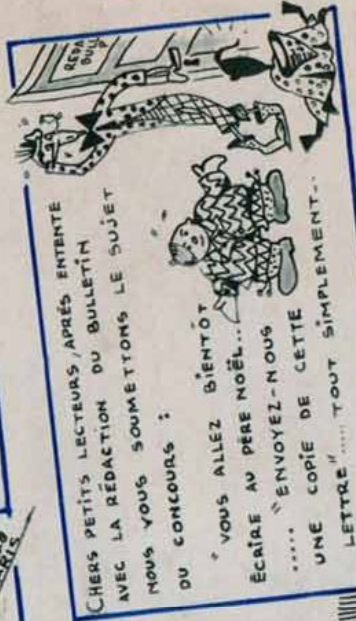 CHERS PETITS LECTEURS, APRÉS ENTENTE
AVEC LA RÉDACTION DU BULLETIN
NOUS VOUS SOUMETTONS LE SUJET
DU CONCOURS :
" VOUS ALLEZ BIENTÔT
ÉCRIRE AU PÈRE NOËL...
..... "ENVOYEZ-NOUS
UNE COPIE DE CETTE
LETTRE" ..... TOUT SIMPLEMENT...
RÉDA
BULL
P
PARIS